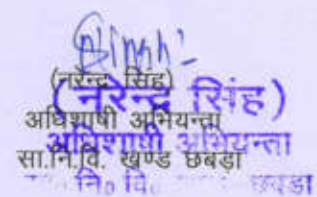 (नरेन्द्र सिंह)
(नरेन्द्र सिंह)
अधिशाषी अभियन्ता
अधिशाषी अभियन्ता
सा.नि.वि. खण्ड छबड़ा
नि० वि० छबड़ा